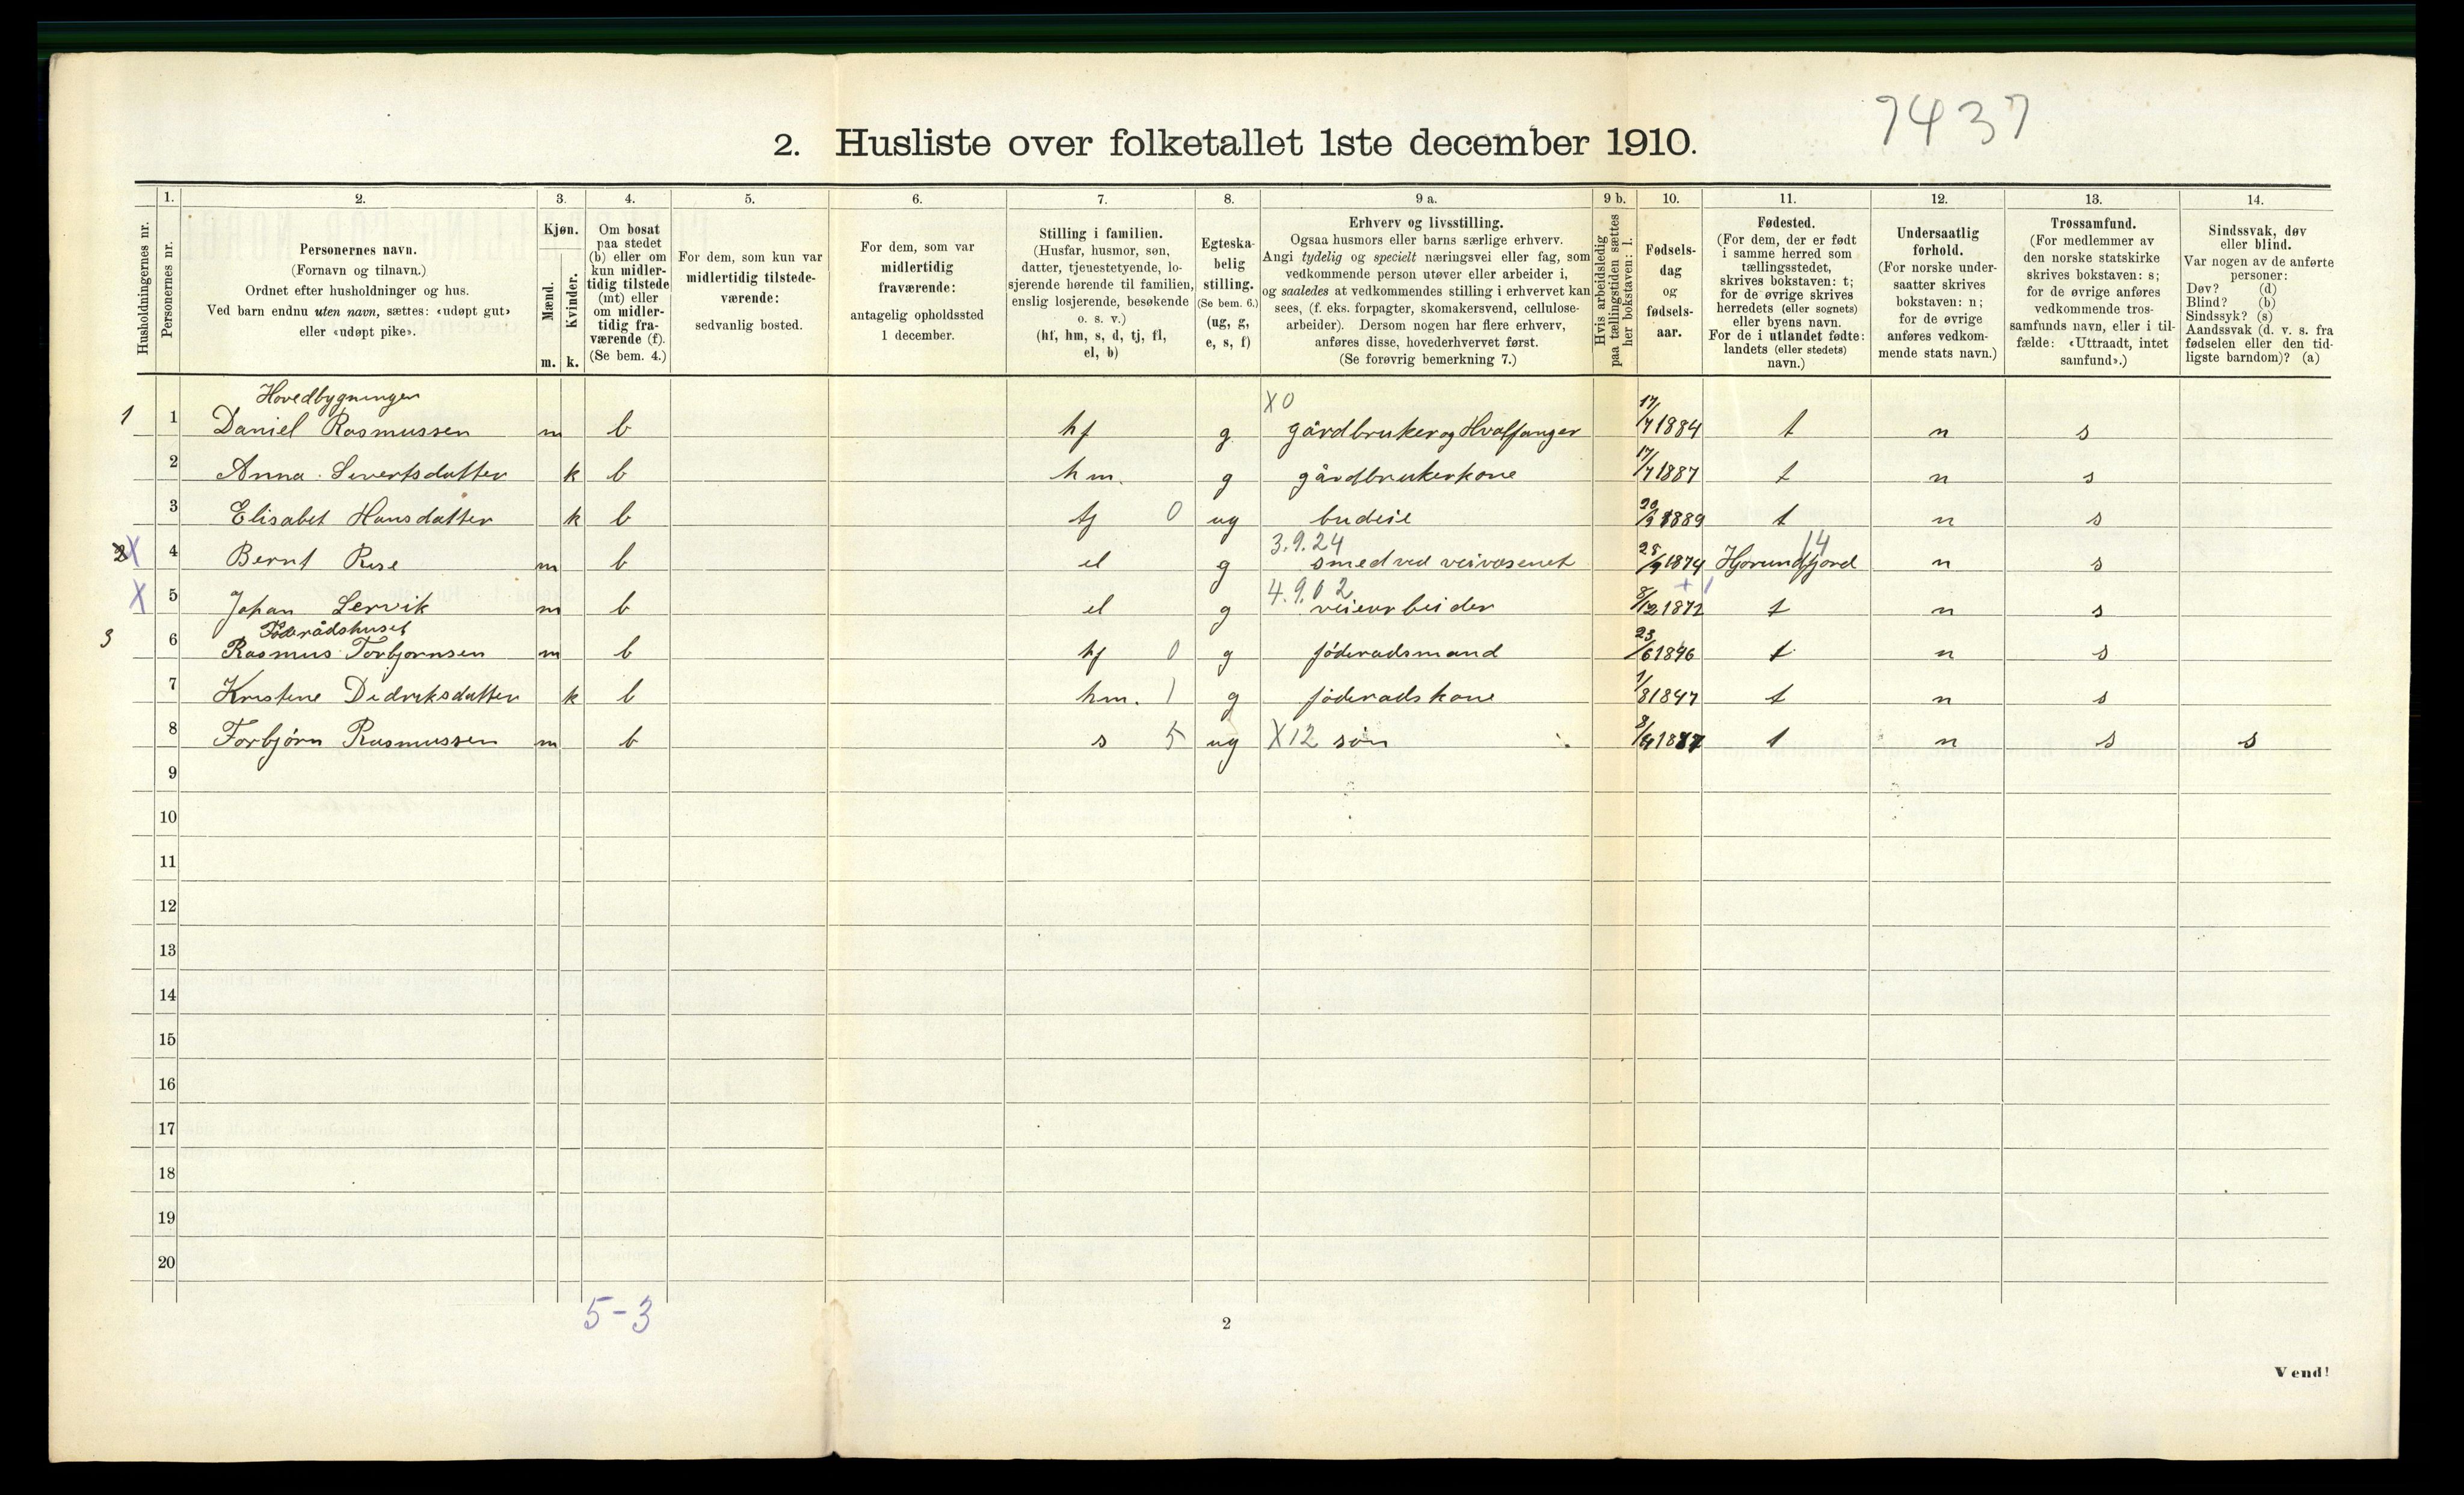 7437
2. Husliste over folketallet 1ste december 1910.
Husholdningernes nr.
1. Personernes nr.
2. Personernes navn.
(Fornavn og tilnavn.)
Ordnet efter husholdninger og hus.
Ved barn endnu uten navn, sættes: «udøpt gut»
eller «udøpt pike».
3. Kjøn.
Mænd. m.
Kvinder. k.
4. Om bosat
paa stedet
(b) eller om
kun midler-
tidig tilstede
(mt) eller
om midler-
tidig fra-
værende (f).
(Se bem. 4.)
5. For dem, som kun var
midlertidig tilstede-
værende:
sedvanlig bosted.
6. For dem, som var
midlertidig
fraværende:
antagelig opholdssted
1 december.
7. Stilling i familien.
(Husfar, husmor, søn,
datter, tjenestetyende, lo-
sjerende hørende til familien,
enslig losjerende, besøkende
o. s. v.)
(hf, hm, s, d, tj, fl,
el, b)
8. Egteska-
belig
stilling.
(Se bem. 6.)
(ug, g,
e, s, f)
9 a. Erhverv og livsstilling.
Ogsaa husmors eller barns særlige erhverv.
Angi tydelig og specielt næringsvei eller fag, som
vedkommende person utøver eller arbeider i,
og saaledes at vedkommendes stilling i erhvervet kan
sees, (f. eks. forpagter, skomakersvend, cellulose-
arbeider). Dersom nogen har flere erhverv,
anføres disse, hovederhvervet først.
(Se forøvrig bemerkning 7.)
9 b. Hvis arbeidsledig
paa tællingstiden sættes
her bokstaven: l.
10. Fødsels-
dag
og
fødsels-
aar.
11. Fødested.
(For dem, der er født
i samme herred som
tællingsstedet,
skrives bokstaven: t;
for de øvrige skrives
herredets (eller sognets)
eller byens navn.
For de i utlandet fødte:
landets (eller stedets)
navn.)
12. Undersaatlig
forhold.
(For norske under-
saatter skrives
bokstaven: n;
for de øvrige
anføres vedkom-
mende stats navn.)
13. Trossamfund.
(For medlemmer av
den norske statskirke
skrives bokstaven: s;
for de øvrige anføres
vedkommende tros-
samfunds navn, eller i til-
fælde: «Uttraadt, intet
samfund».)
14. Sindssvak, døv
eller blind.
Var nogen av de anførte
personer:
Døv? (d)
Blind? (b)
Sindssyk? (s)
Aandssvak (d. v. s. fra
fødselen eller den tid-
ligste barndom)? (a)
Hovedbygningen X0
1 1 Daniel Rasmussen m b hf g gårdbruker og Hvalfanger 17/7 1884 t n s
2 Anna Sivertsdatter k b hm. g gårdbrukerkone 17/7 1887 t n s
3 Elisabet Hansdatter k b tj 0 ug budeie 20/9 1889 t n s
3.9.24 14
2 X 4 Bernt Rise m b el g smed ved veivæsenet 28/9 1874 Hjørundfjord n s
4.9.02 + 1
X 5 Johan Lervik m b el g veiearbeider 8/12 1872 t n s
Föderådshuset
3 6 Rasmus Torbjørnsen m b hf 0 g föderadsmand 23/6 1846 t n s
7 Kristine Didriksdatter k b hm. 1 g föderadskone 1/8 1847 t n s
8 Torbjørn Rasmussen m b s 5 ug X12 søn 8/4 1887 t n s s
9
10
11
12
13
14
15
16
17
18
19
20
5-3
2
Vend!